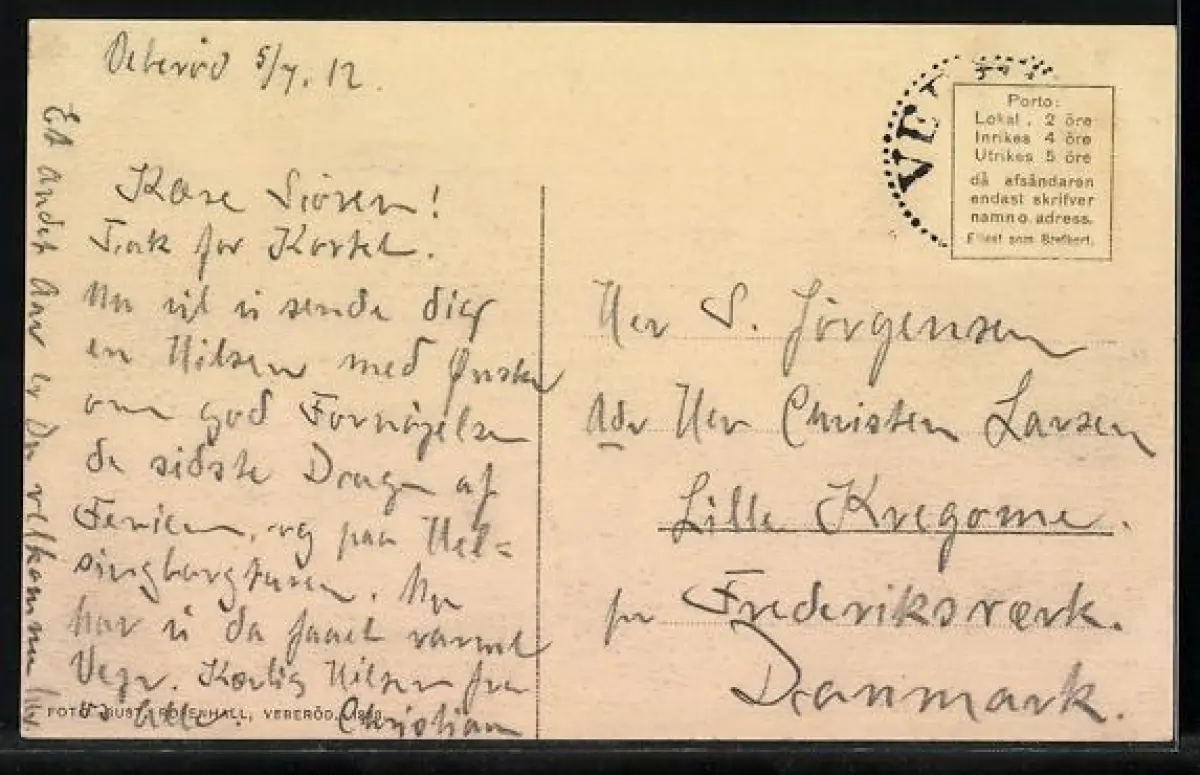 Veberöd 5/7. 12.
Kære Sören!
Tak for Kortet.
Nu vil vi sende dig
en Hilsen med Ønsket
om god Fornöjelse
de sidste Dage af
Ferien, og paa Hel=
singborgturen. Nu
har vi da faaet varmt
Vejr. Kærlig Hilsen fra
os alle. Christian
Et andet Aar er Du velkommen
VE
Porto:
Lokal. 2 öre
Inrikes 4 öre
Utrikes 5 öre
då afsändaren
endast skrifver
namn o. adress.
Eljest som Brefkort.
Herr S. Jörgensen
Adr Herr Christen Larsen
Lille Kregome.
pr Frederiksværk.
Danmark.
FOTO GUST. ROSENHALL, VEBERÖD.